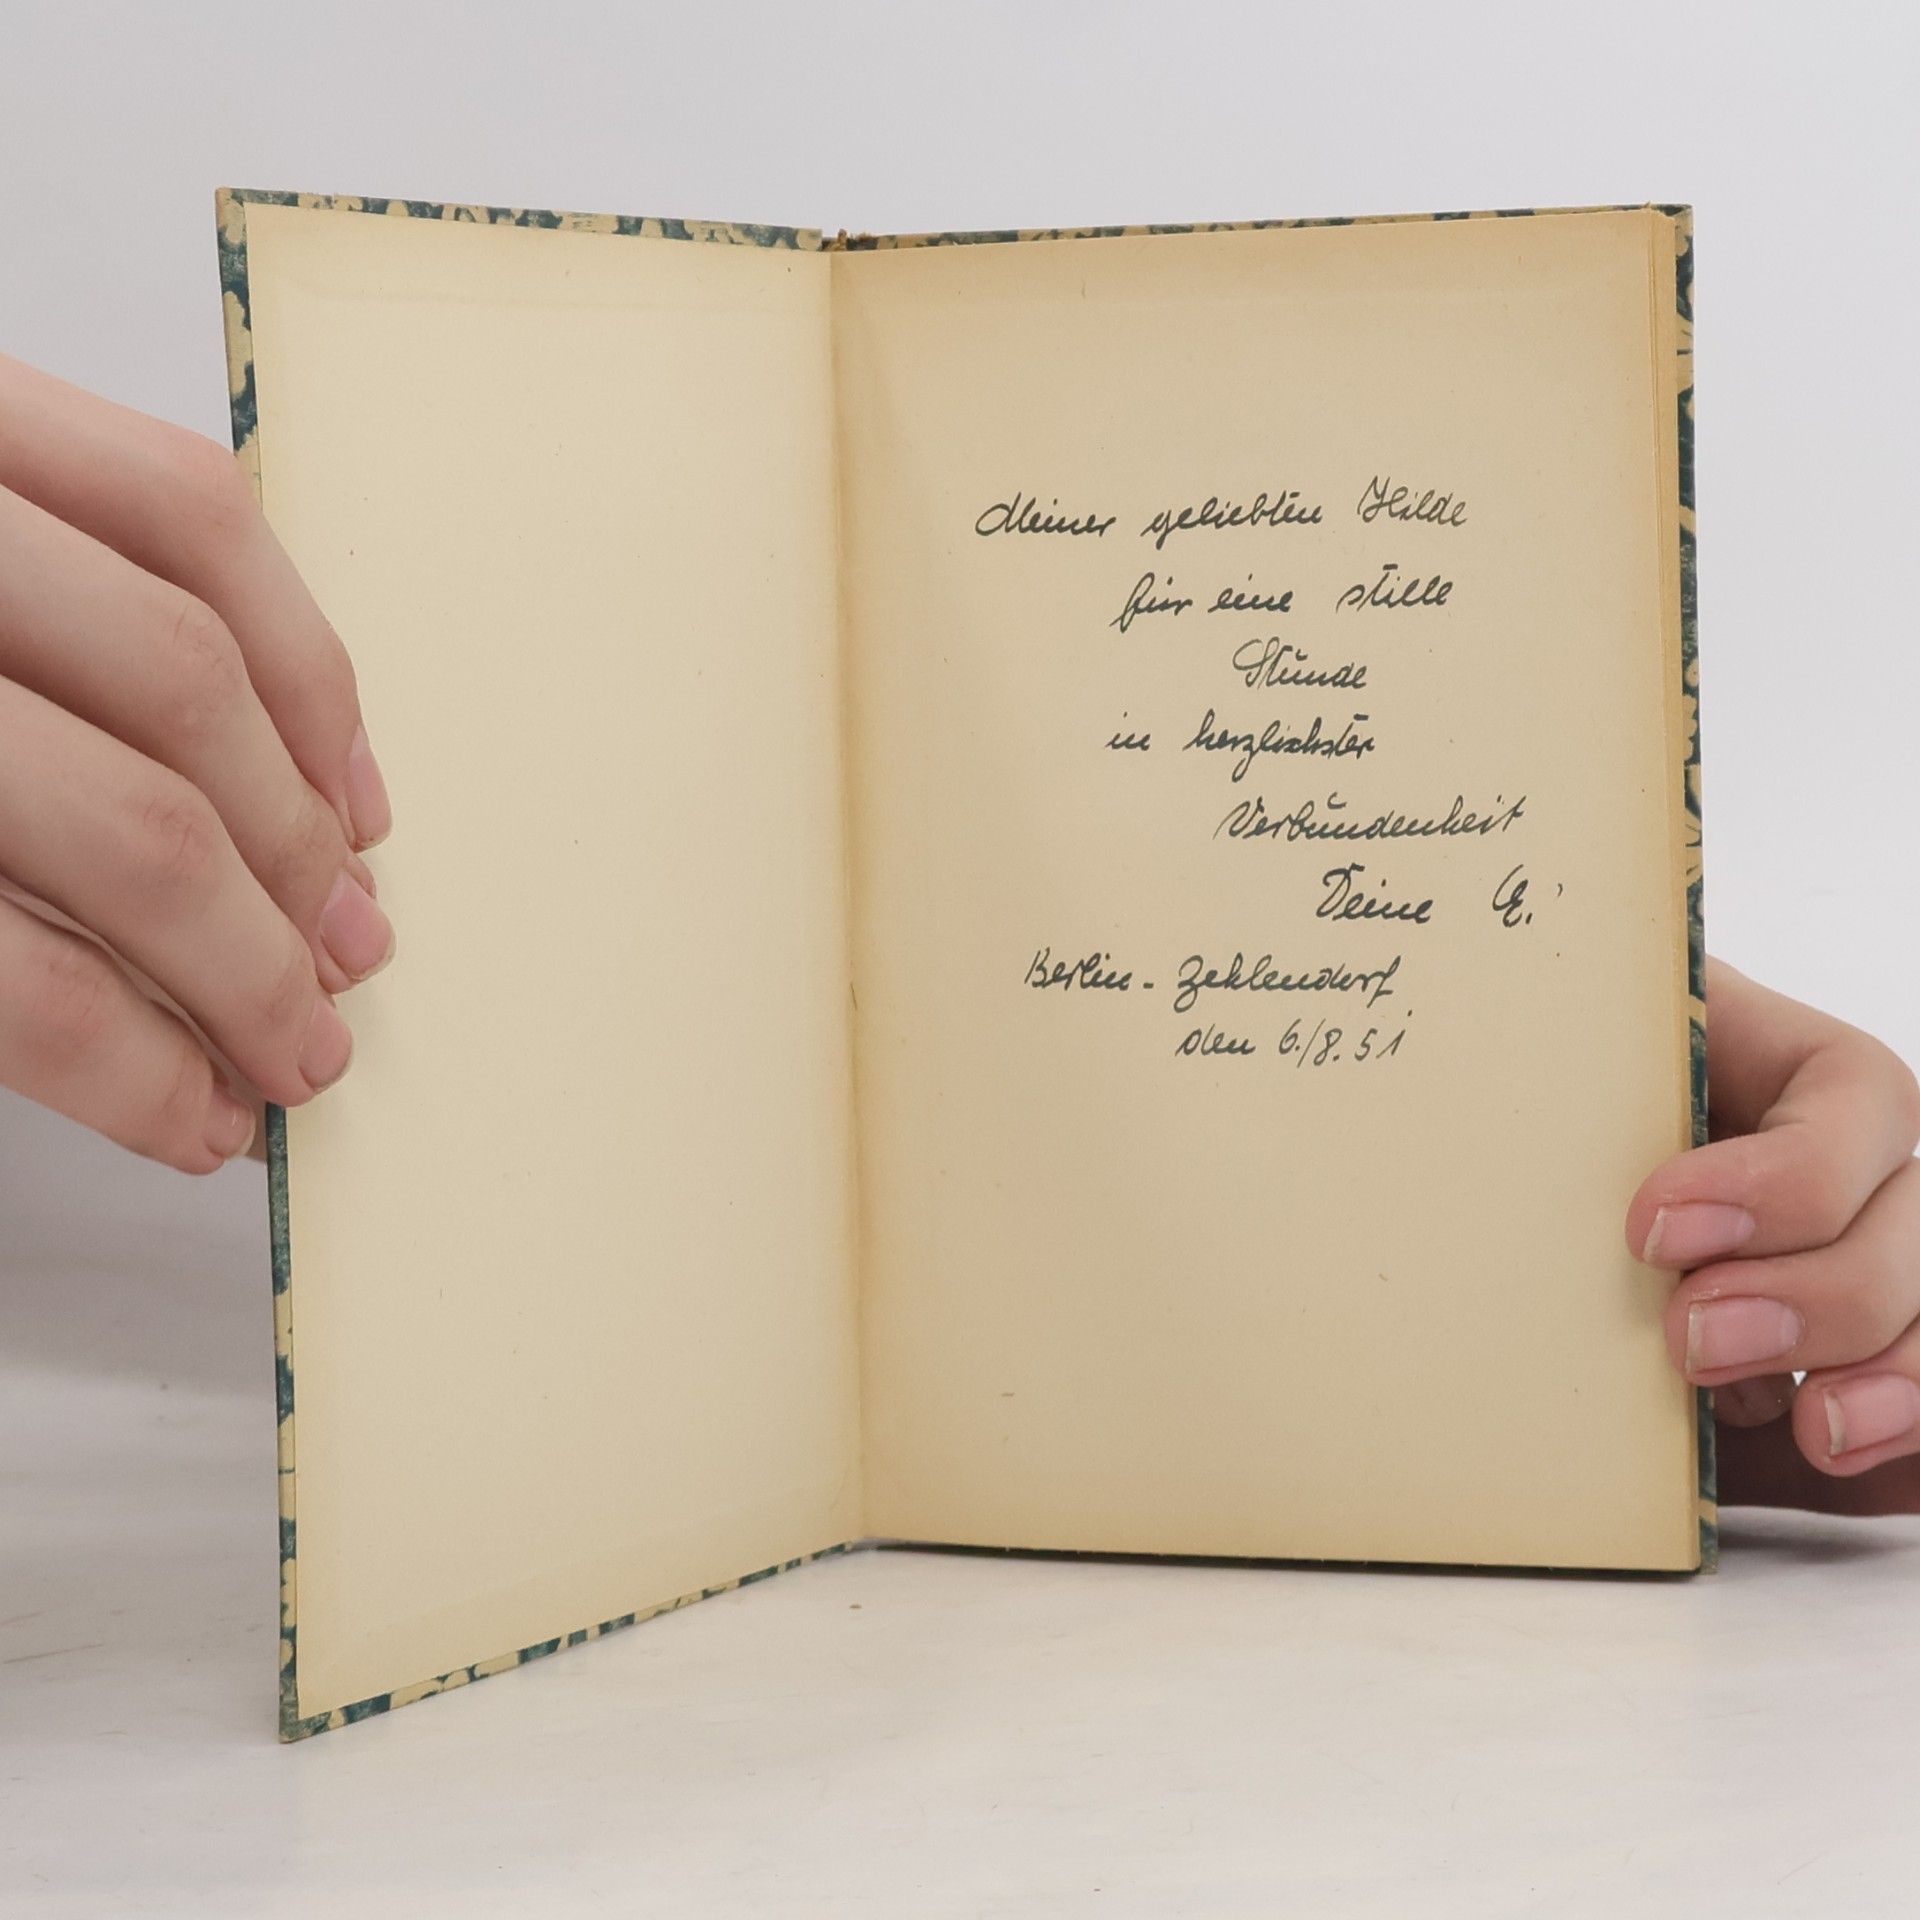 Meiner geliebten Hilde
für eine stille
Stunde
in herzlichster
Verbundenheit
Deine E.
Berlin - Zehlendorf
den 6./8.51